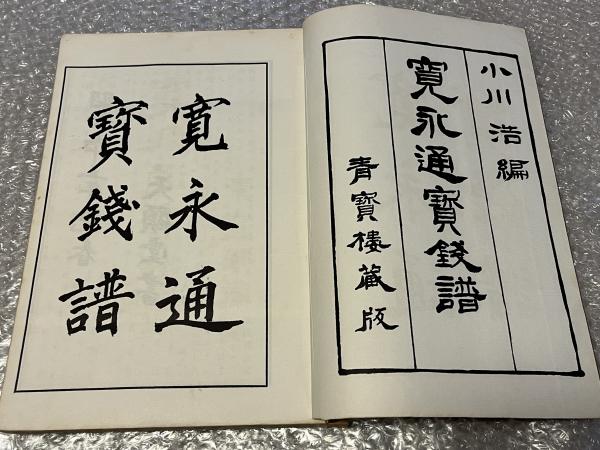 小川浩編
寛永通寳銭譜
青寳樓藏版
寛永通
寳錢譜